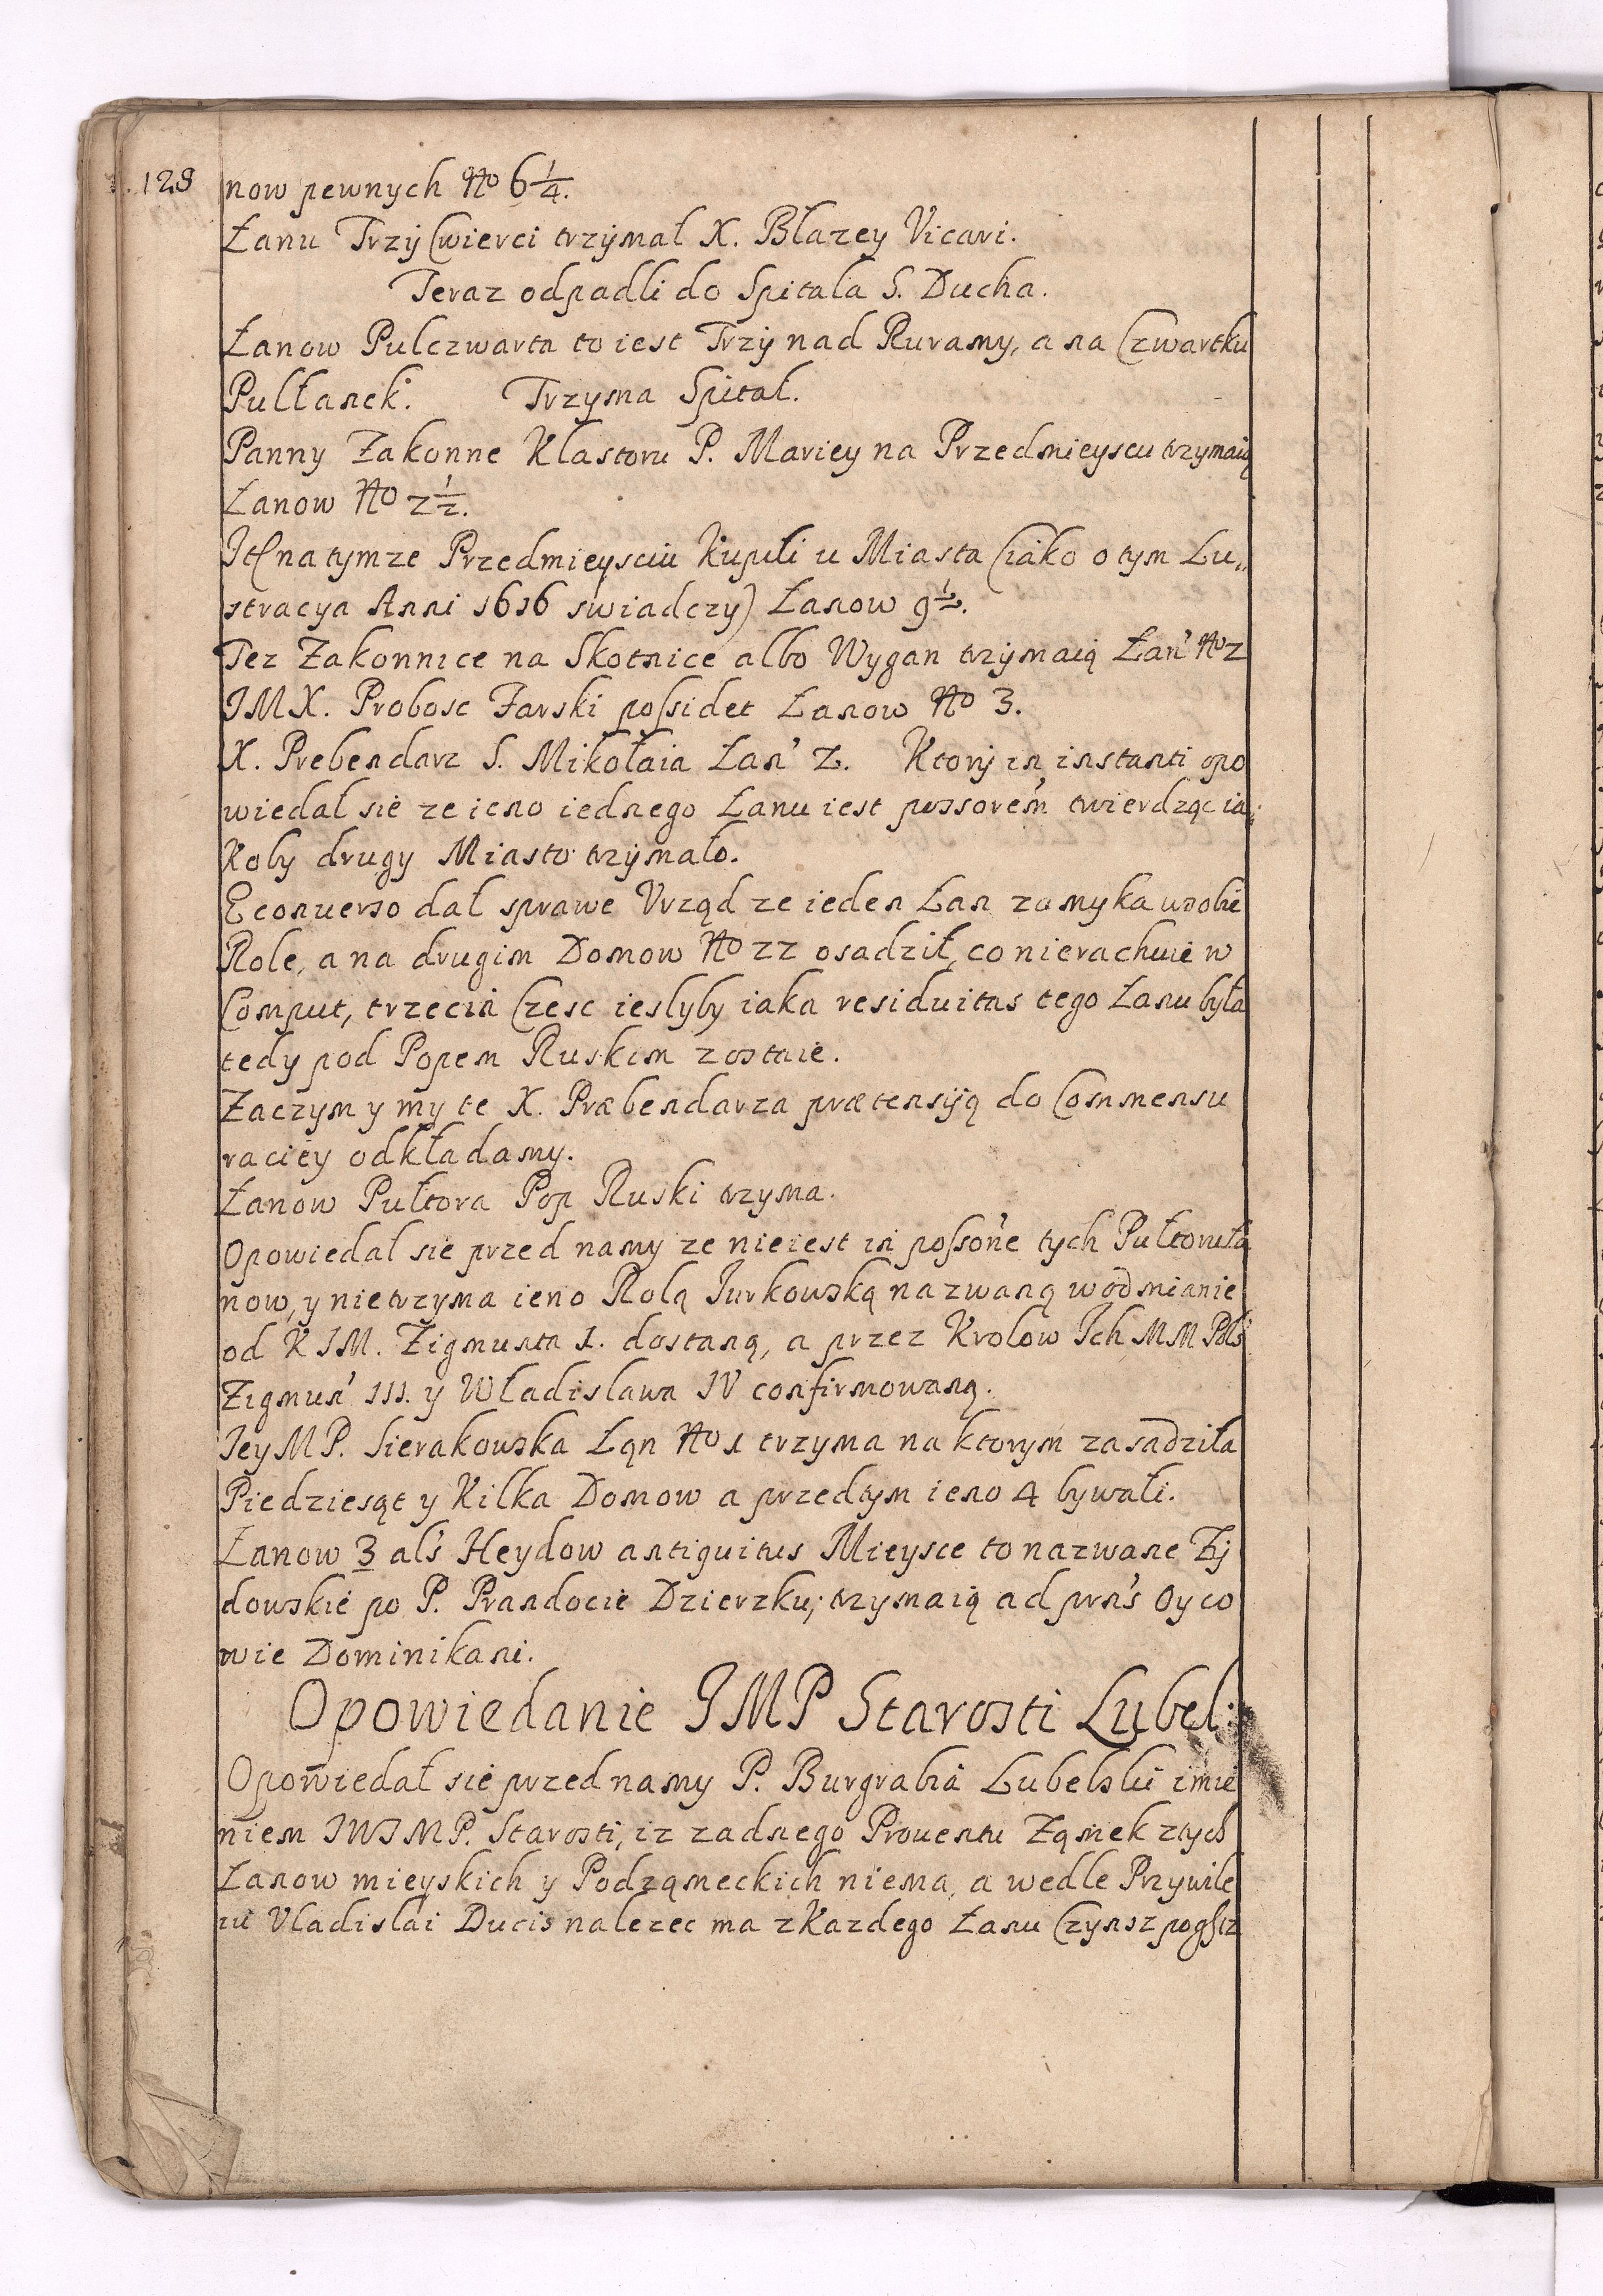 128
now pewnych No 6 1/4.
Łanu Trzy Cwierci trzymał X. Błazey Vicari.
Teraz odpadli do Spitala S. Ducha.
Łanow Pulczwarta to iest Trzy nad Ruramy, a na Czwartku
Pulłanek. Trzyma Spital.
Panny Zakonne Klastoru P. Mariey na Przedmieyscu trzymaią
Łanow No 2 1/2.
It na tymze Przedmieysciu Kupili u Miasta (iako o tym Lu„
stracya Anni 1616 swiadczy) Łanow 9 1/2.
Tez Zakonnice na Skotnice albo Wygan trzymaią Łan' No 2
JMX. Probosc Farski possidet Łanow No 3.
X. Prebendarz S. Mikołaia Łan' 2. Ktory in instanti opo
wiedał sie ze ieno iednego Łanu iest possorem twierdząc ia„
koby drugy Miasto trzymało.
Econuerso dał sprawe Vrząd ze ieden Łan zamyka w sobie
Role, a na drugim Domow No 22 osadził, co nierachuie w
Comput, trzecia Czesc ieslyby iaka residuitas tego Łanu była
tedy pod Popem Ruskim zostaie.
Zaczym y my te X. Præbendarza prætensyą do Commensu
raciey odkładamy.
Łanow Pułtora Pop Ruski trzyma.
Opowiedał sie przed namy ze nieiest in possone tych Pułtoru Ła
now, y nietrzyma ieno Rolą Jurkowską nazwaną w odmianie
od K JM. Zigmunta I. dostaną, a przez Krolow Ich MM Pols
Zigmun' III. y Władislawa IV confirmowaną.
Jey MP. Sierakowska Łąn No 1 trzyma na ktorym zasadziła
Piedziesąt y Kilka Domow a przedtym ieno 4 bywałi.
Łanow 3 als Heydow antiquitus Mieysce to nazwane Zy
dowskie po P. Prandocie Dzierzku; trzymaią ad prns Oyco
wie Dominikani.
Opowiedanie JMP Starosti Lubel:
Opowiedał sie przed namy P. Burgrabia Lubelski imie
niem JWJMP. Starosti, iz zadnego Prouentu Ząmek z tych
Łanow mieyskich y Podząmeckich niema, a wedle Przywile
iu Vladislai Ducis nalezec ma z Kazdego Łanu Czynsz